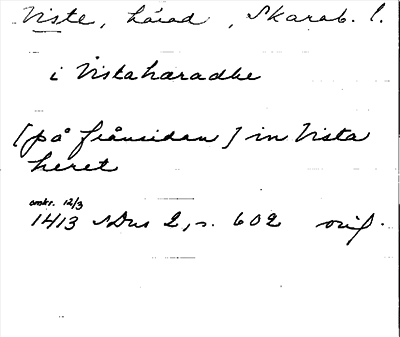 Viste, härad, Skarab. l.
i Vistahæradhe
[på frånsidan] in Vista
heret
omkr. 12/3
1413 SDns 2, s. 602 orig.